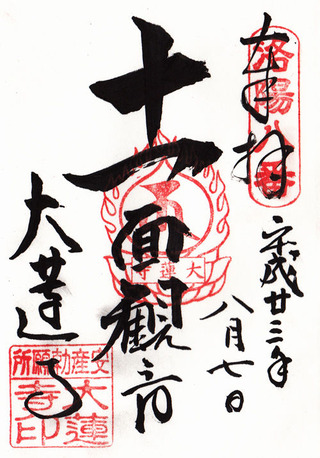 奉拝
洛陽八番
平成廿三年
八月七日
十一面觀音
大蓮寺
大蓮寺
安産勅願所
大蓮寺印